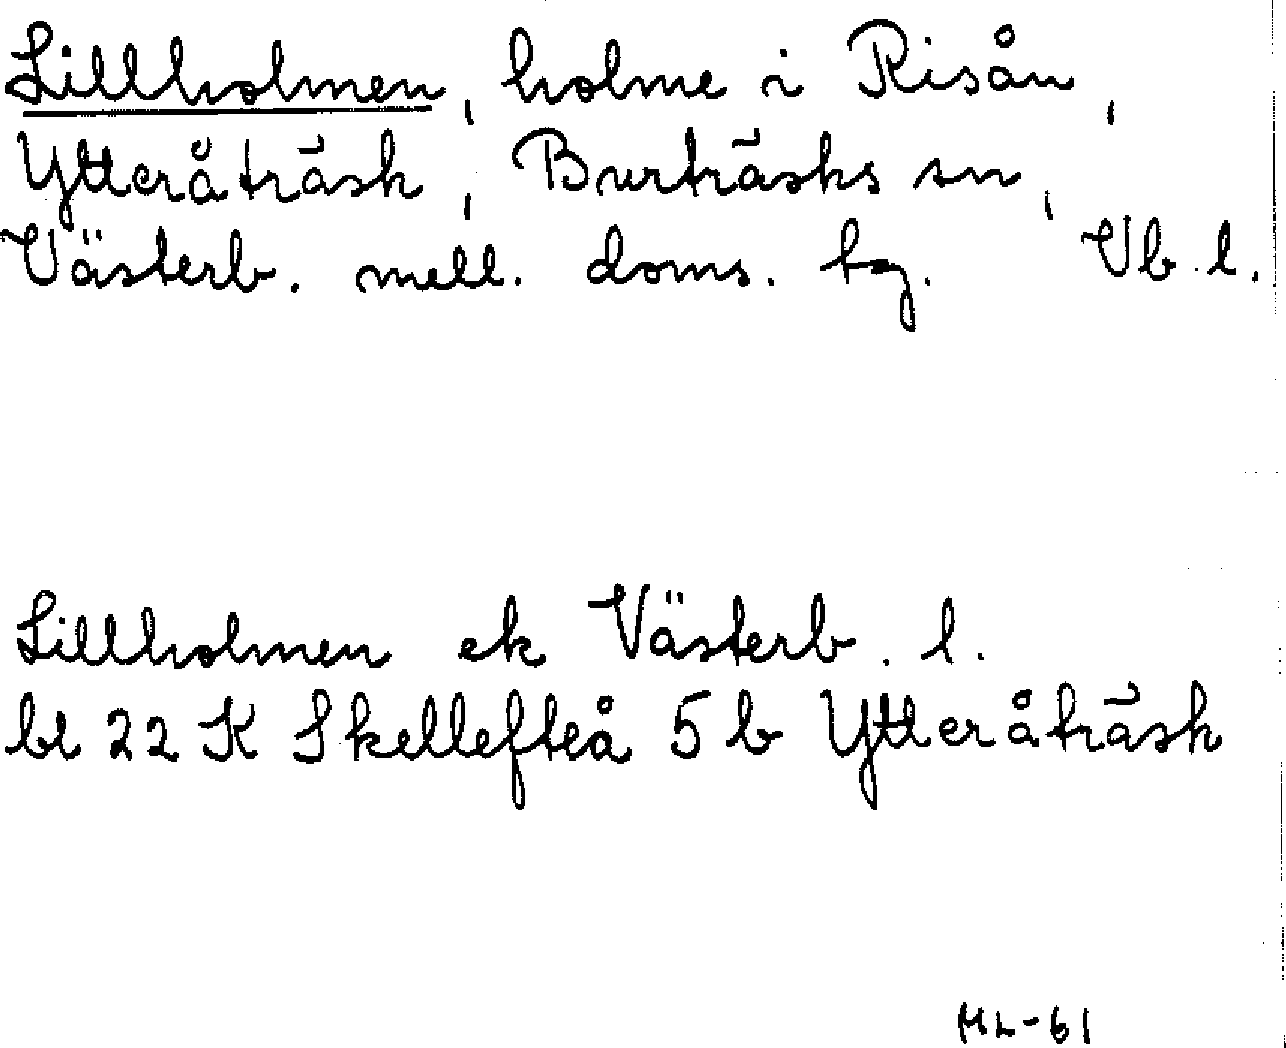 Lillholmen, holme i Risån,
Ytteråträsk, Burträsks sn,
Västerb. mell. doms. tg. Vb. l.
Lillholmen ek Västerb. l.
bl 22 K Skellefteå 5 b Ytteråträsk
ML-61